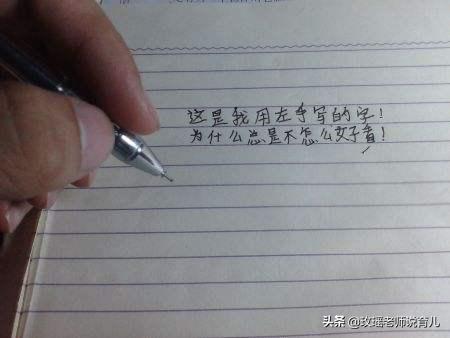 这是我用左手写的字！
为什么总是不怎么好看！
头条 @玫瑶老师说育儿